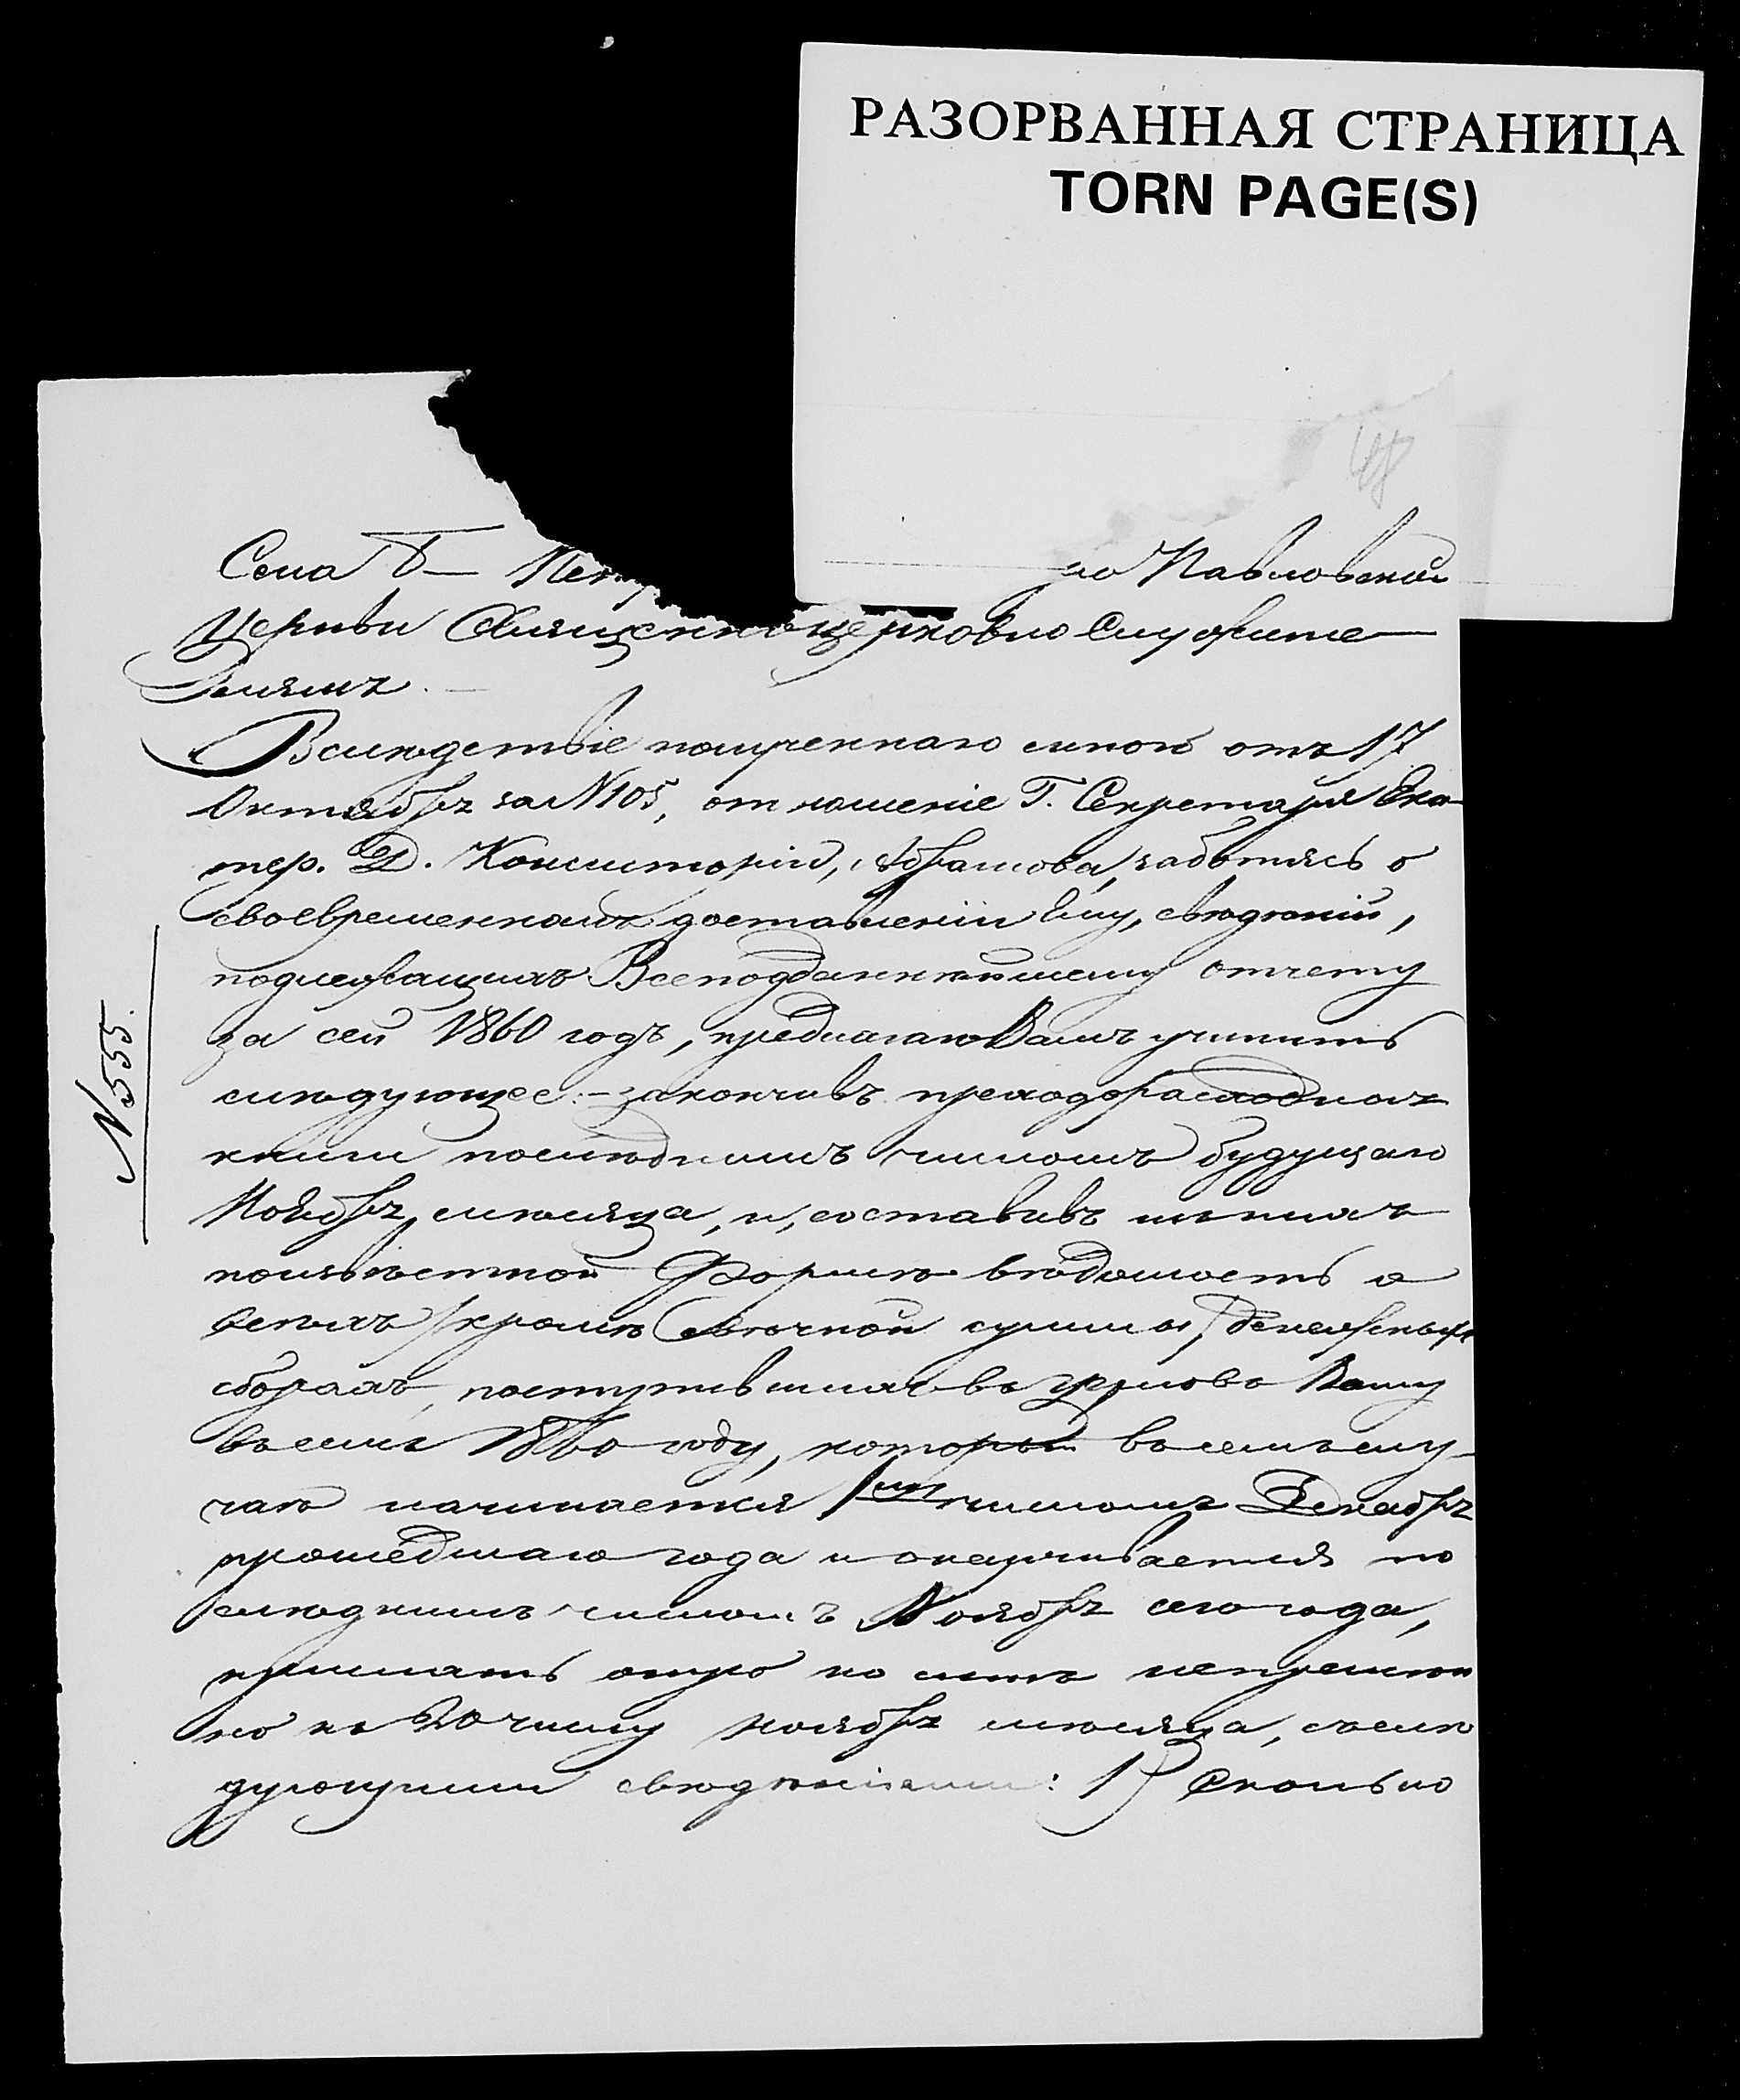 РАЗОРВАННАЯ СТРАНИЦА
TORN PAGE(S)
Села Б— Пет но Павловской
Церкви Священноцерковно Служите—
лямъ.—
Вслѣдствіе полученнаго мной отъ 17
Октябрѣ за N105, отношеніе Г. Секретаря Ека-
тер. Д. Консисторіи, Абрамова, заботясь о
своевременномъ доставленіи Ему, свѣдѣній,
подлежащихъ Всеподданнѣйшему отчету
за сей 1860 годъ, предлагаю Вамъ учинить
слѣдующее:— закончивъ преходорасходныя
книги послѣднимъ числомъ будущаго
Ноябрѣ мѣсяца, и, составивъ
поизвѣстной Формѣ вѣдомость о
всѣхъ /кромѣ Свѣчной суммы,/ денежныхъ
сборахъ, поступившихъ въ церковь Вашу
въ семъ 1860 году, который въ семъ слу-
чаѣ начинается 1мъ числомъ Декабрѣ
прошедшаго года и оканчивается по
слѣднимъ числомъ Ноябрѣ сего года,
прислать оную ко мнѣ непремѣн
но къ 20 числу Ноябрѣ мѣсяца, сослѣ
дующими свѣдѣніями: 1) Сколько
N555.